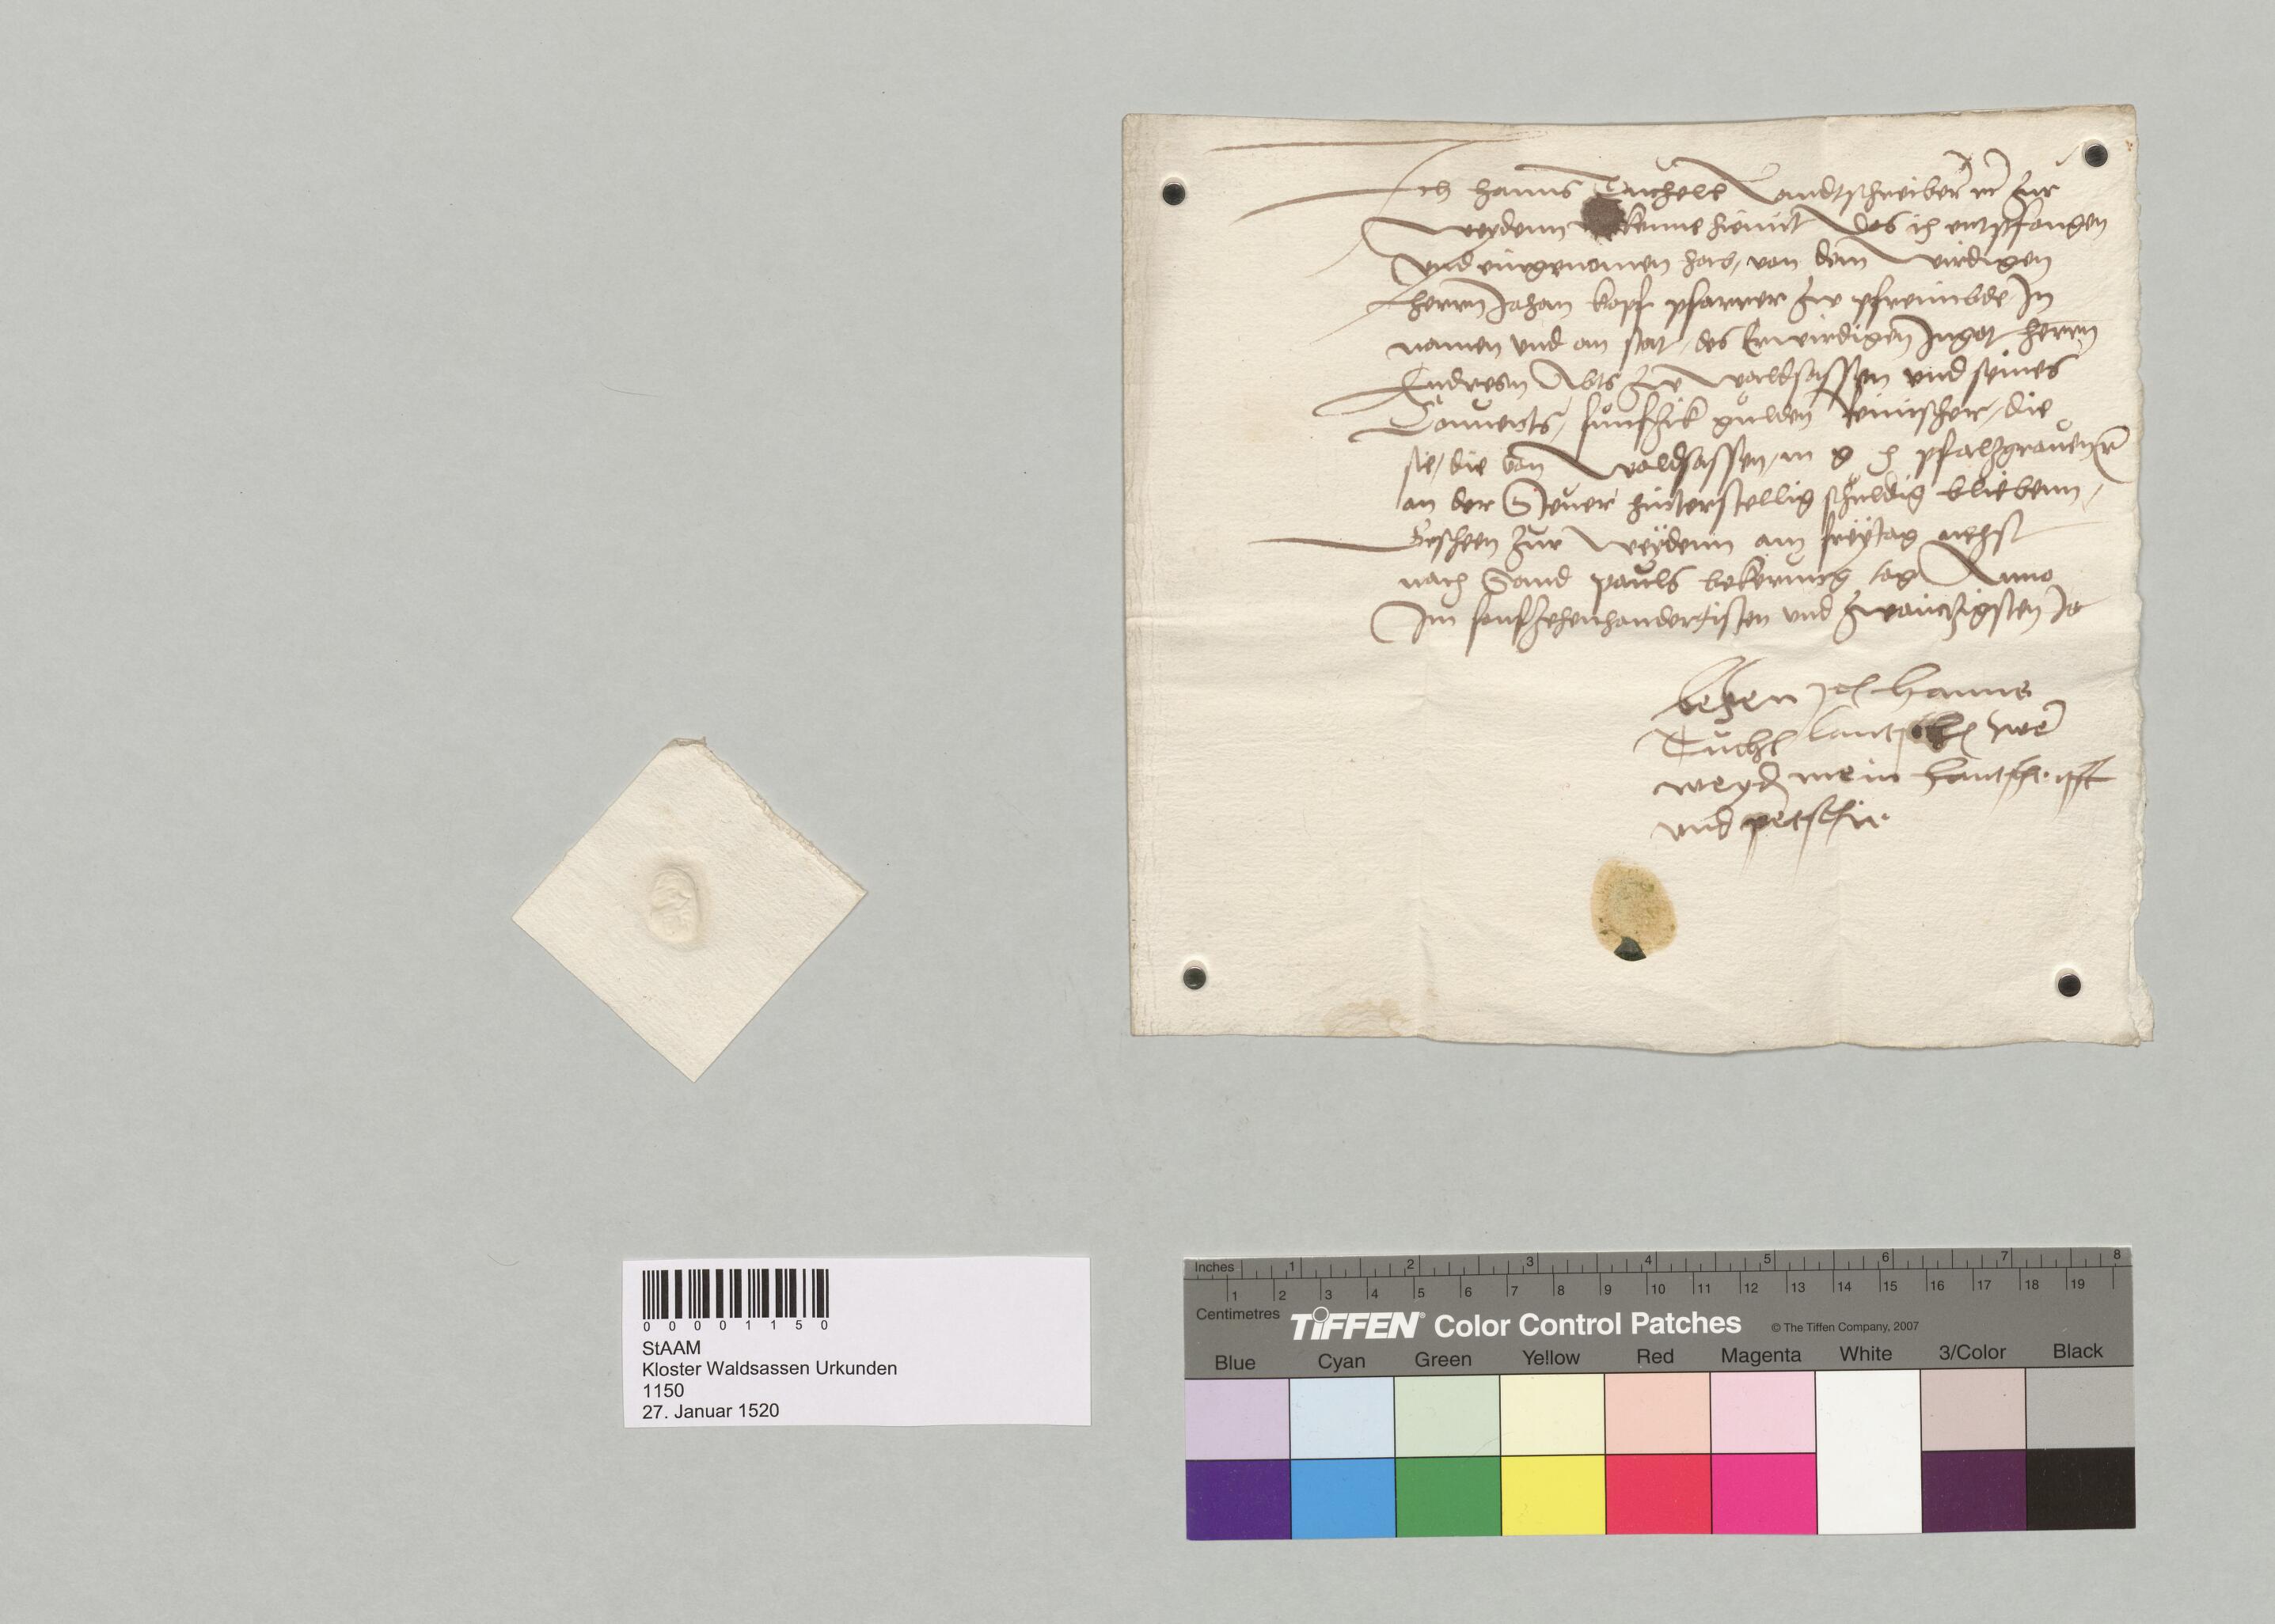 Ich Hanns Tuchell Landtschreiber zur
weydenn kenne hiemit das ich entpfangen
und eingenomen hab, von dem wirdigen
herrn Johan kopf pfarrer zw pfreimbde In
namen und an stat, des Erwirdigen Ingot herrn
Andresen Abts zw waldsassen und seines
Convents, funfzik gulden Reinischer, die
sie, die von waldsassen, m g h pfalzgraven
an der Steuer hinterstellig schuldig blibenn,
Gescheen zur weydenn am freytag nehst
nach Sand pauls bekerung tag Anno
Im funfzehenhundertisten und zwainczigsten Ja
beken ich Hanns
Tuchl
weyd mein hantschrifft
und petschir
0 0 0 0 1 1 5 0
StAAM
Kloster Waldsassen Urkunden
1150
27. Januar 1520
Inches 1 2 3 4 5 6 7 8
1 2 3 4 5 6 7 8 9 10 11 12 13 14 15 16 17 18 19
Centimetres
TIFFEN® Color Control Patches © The Tiffen Company, 2007
Blue Cyan Green Yellow Red Magenta White 3/Color Black